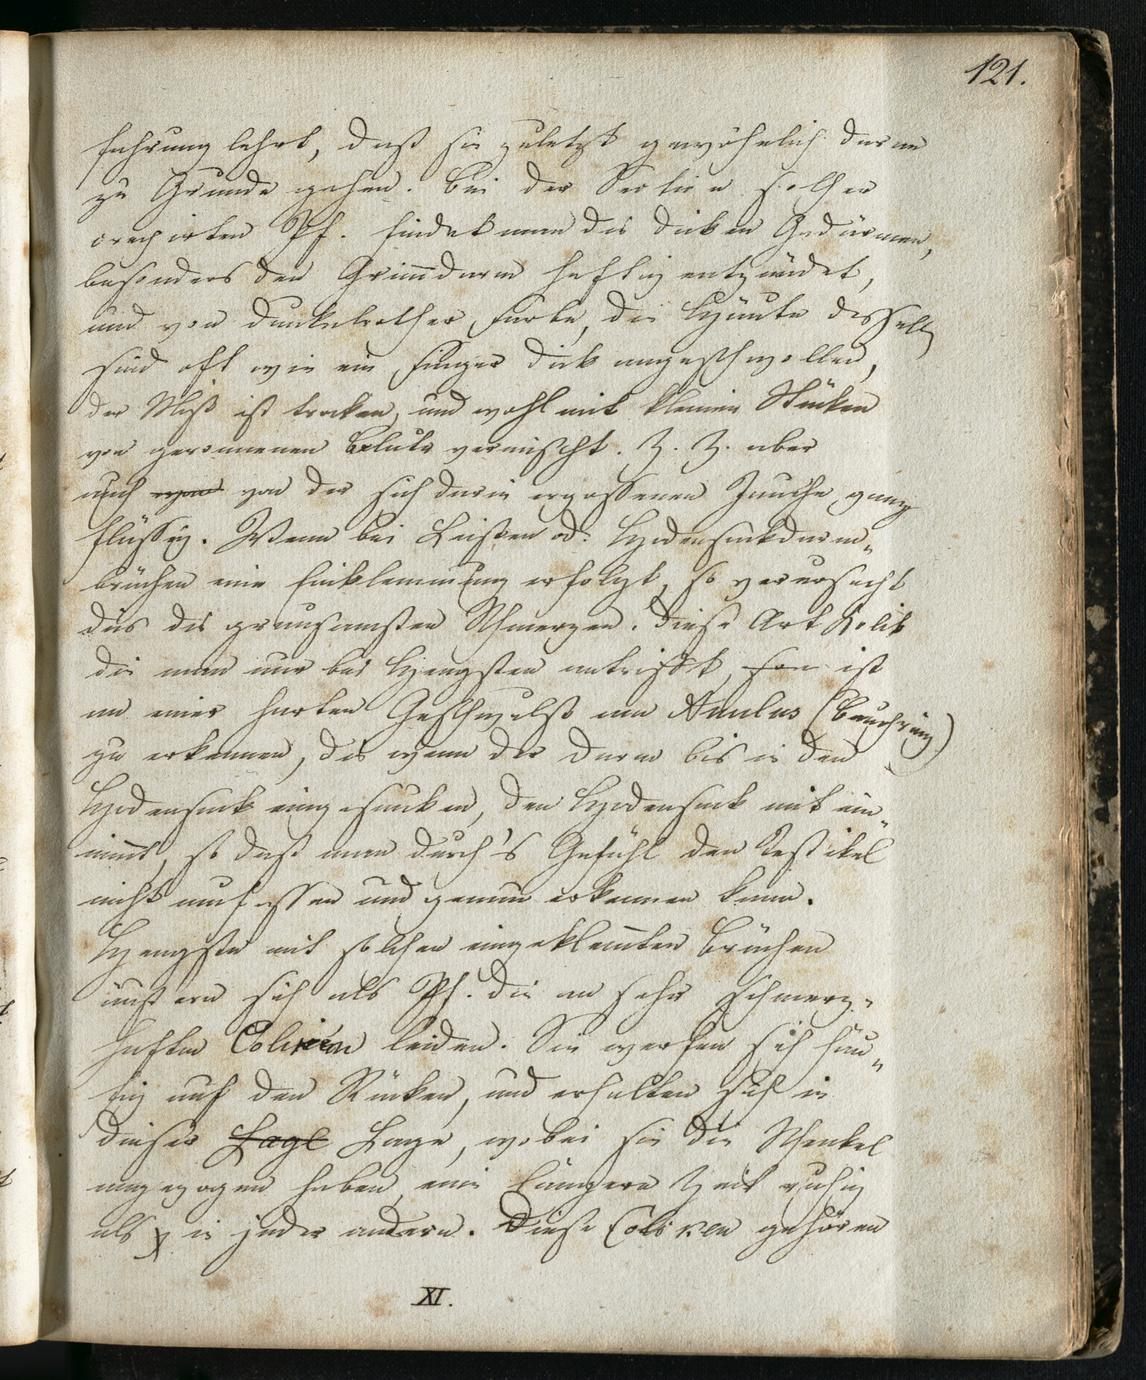 121.
fahrung lehrt, daß sie zuletzt gewöhnlich daran
zu Grunde gehen. Bei der Section solcher
crepirten Pf. findet man die dicken Gedärmen,
besonders den Grim̄darm heftig entzündet,
und von dunkelrother Farbe, die Häute desselb
sind oft wie ein Finger dick angeschwollen,
der Mist ist trocken, und wohl mit kleinen Stücken
von geronnenen Blute vermischt. Z. Z. aber
auch von von der sich darin ergossenen Jauche ganz
flüssig. Wenn bei Leisten od. Hodensackdarm-
brüchen eine Einklemmung erfolgt, so verursacht
das die grausamsten Schmerzen. Diese Art Kolik
die man nur bei Hengsten antrifft, ist
an einer harten Geschwulst am Annulus (Bauchring)
zu erkennen, die wenn der Darm bis in den
Hodensack eingesunken, den Hodensack mit ein-
nim̄t, so daß man durch's Gefühl den Testikel
nicht auffassen und genau erkennen kann.
Hengste mit solchen eingeklem̄ten Brüchen
äußern sich als Pf. die an sehr schmerz-
haften Coliken leiden. Sie werfen sich häu-
fig auf den Rücken, und erhalten sich in
dieser Lage Lage, wobei sie die Schenkel
angezogen haben, eine längere Zeit ruhig
als in jeder andern. Diese Coliken gehören
XI.